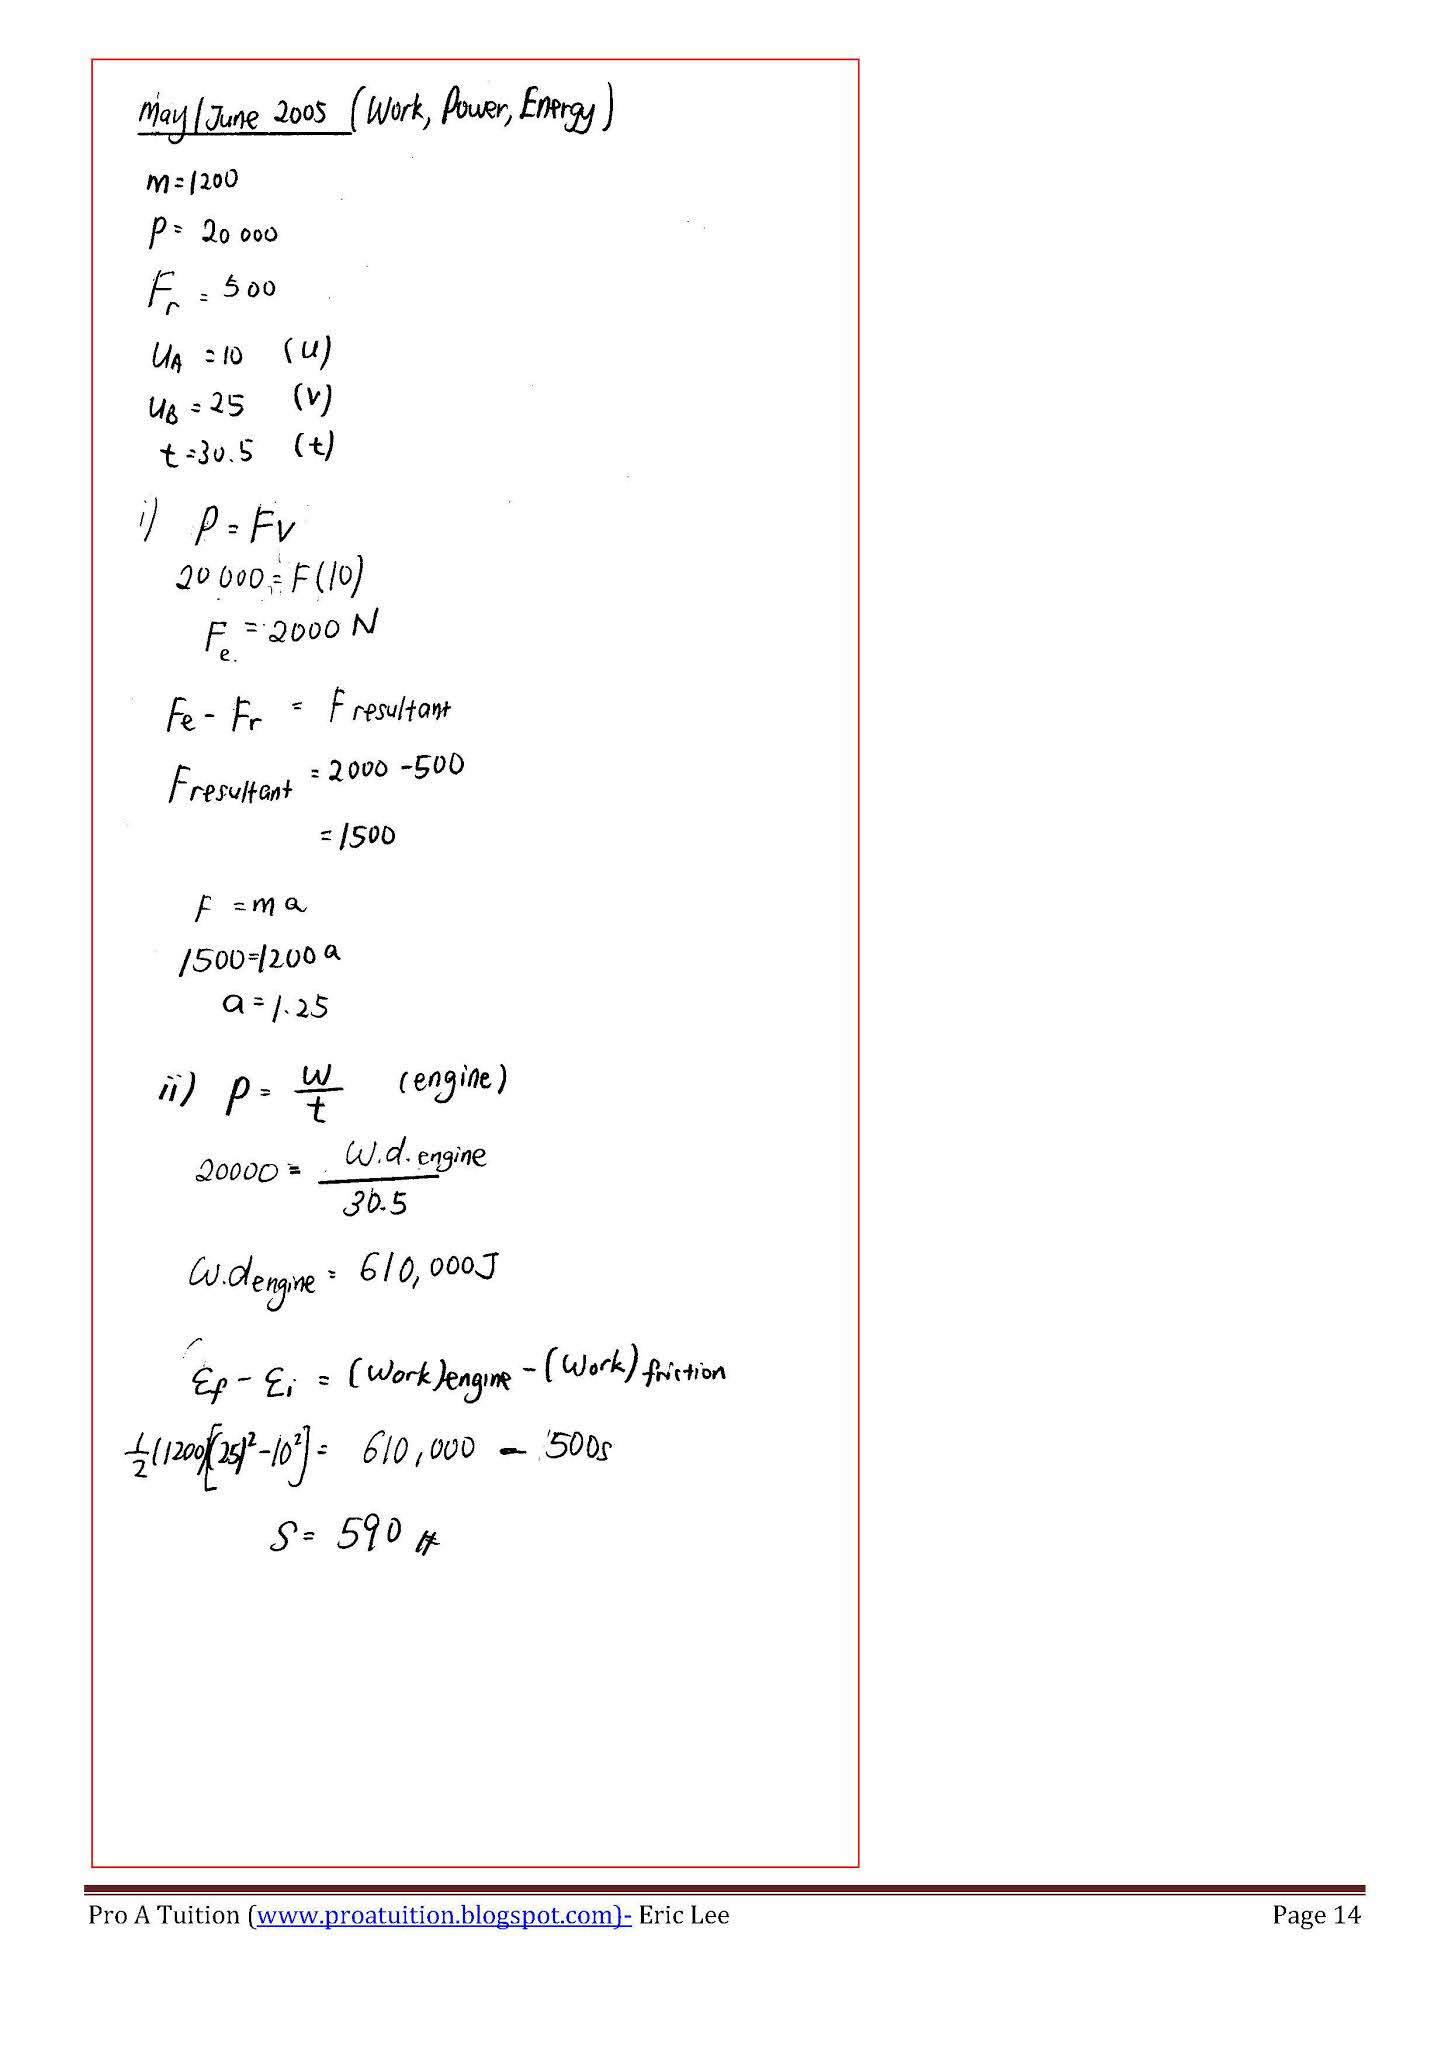 May/June 2005 (Work, Power, Energy)
m=1200
P= 20 000
Fr = 500
UA =10 (u)
UB =25 (v)
t=30.5 (t)
i) P=Fv
20 000=F(10)
Fe. =2000 N
Fe - Fr = F resultant
F resultant =2000 -500
=1500
F =ma
1500=1200a
a=1.25
ii) P= W/t (engine)
20000= W.d. engine/30.5
W.d engine = 610,000J
Ef - Ei = (Work)engine -(Work) friction
1/2(1200)[(25)²-10²]= 610,000 - 500s
S= 590 #
Pro A Tuition (www.proatuition.blogspot.com)- Eric Lee Page 14